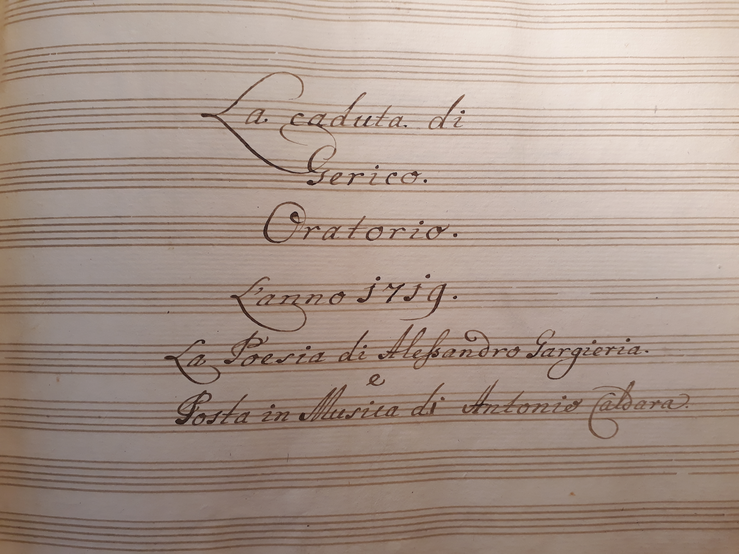 La caduta di
Gerico.
Oratorio.
L'anno 1719.
La Poesia di Alessandro Gargieria.
e
Posta in Musica di Antonio Caldara.